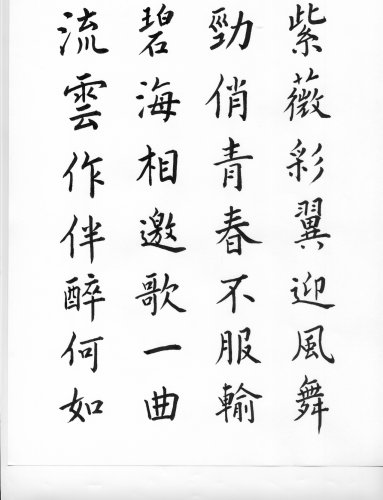 紫薇彩翼迎風舞
勁俏青春不服輸
碧海相邀歌一曲
流雲作伴醉何如